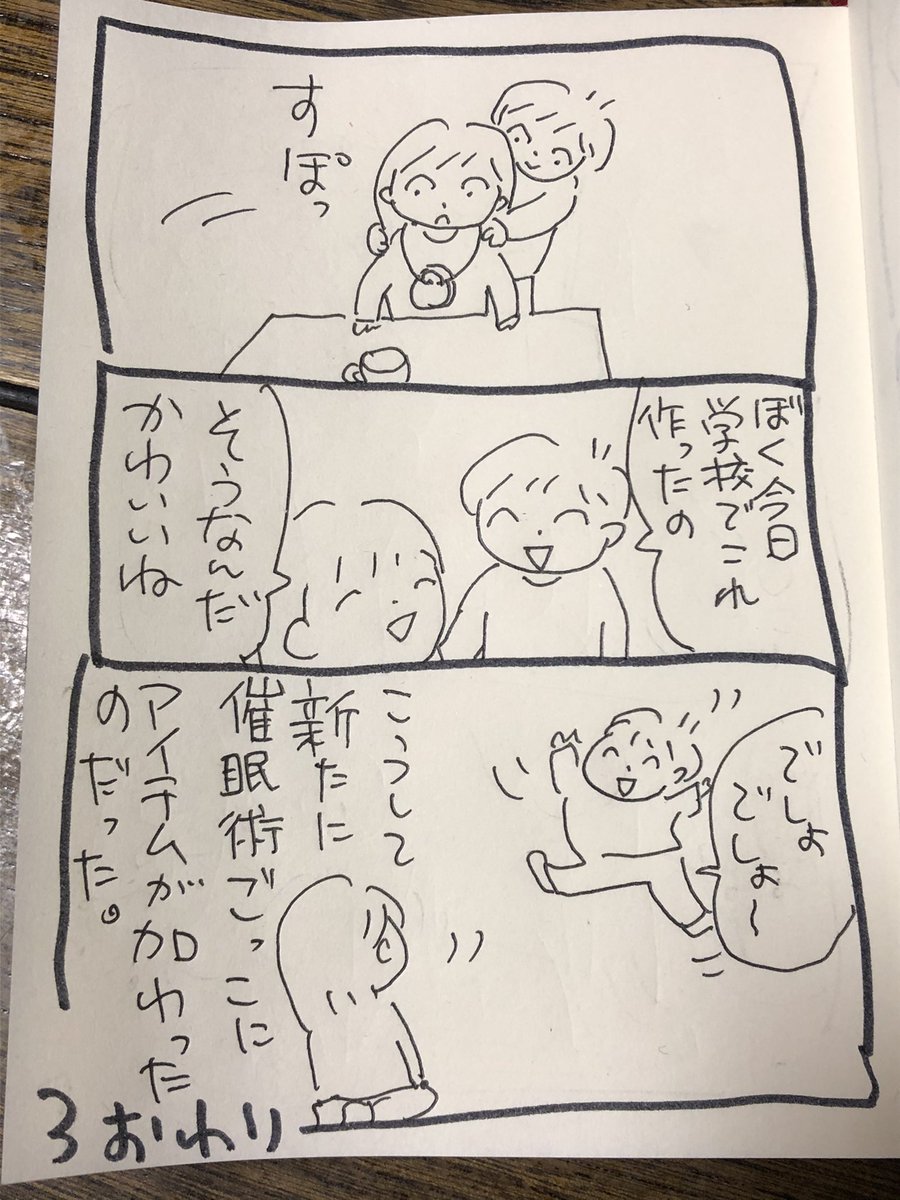 すぽっ
ぼく今日
学校でこれ
作ったの
そうなんだ
かわいいね
でしょ
でしょ〜
こうして
新たに
催眠術ごっこに
アイテムが加わった
のだった。
3おわり